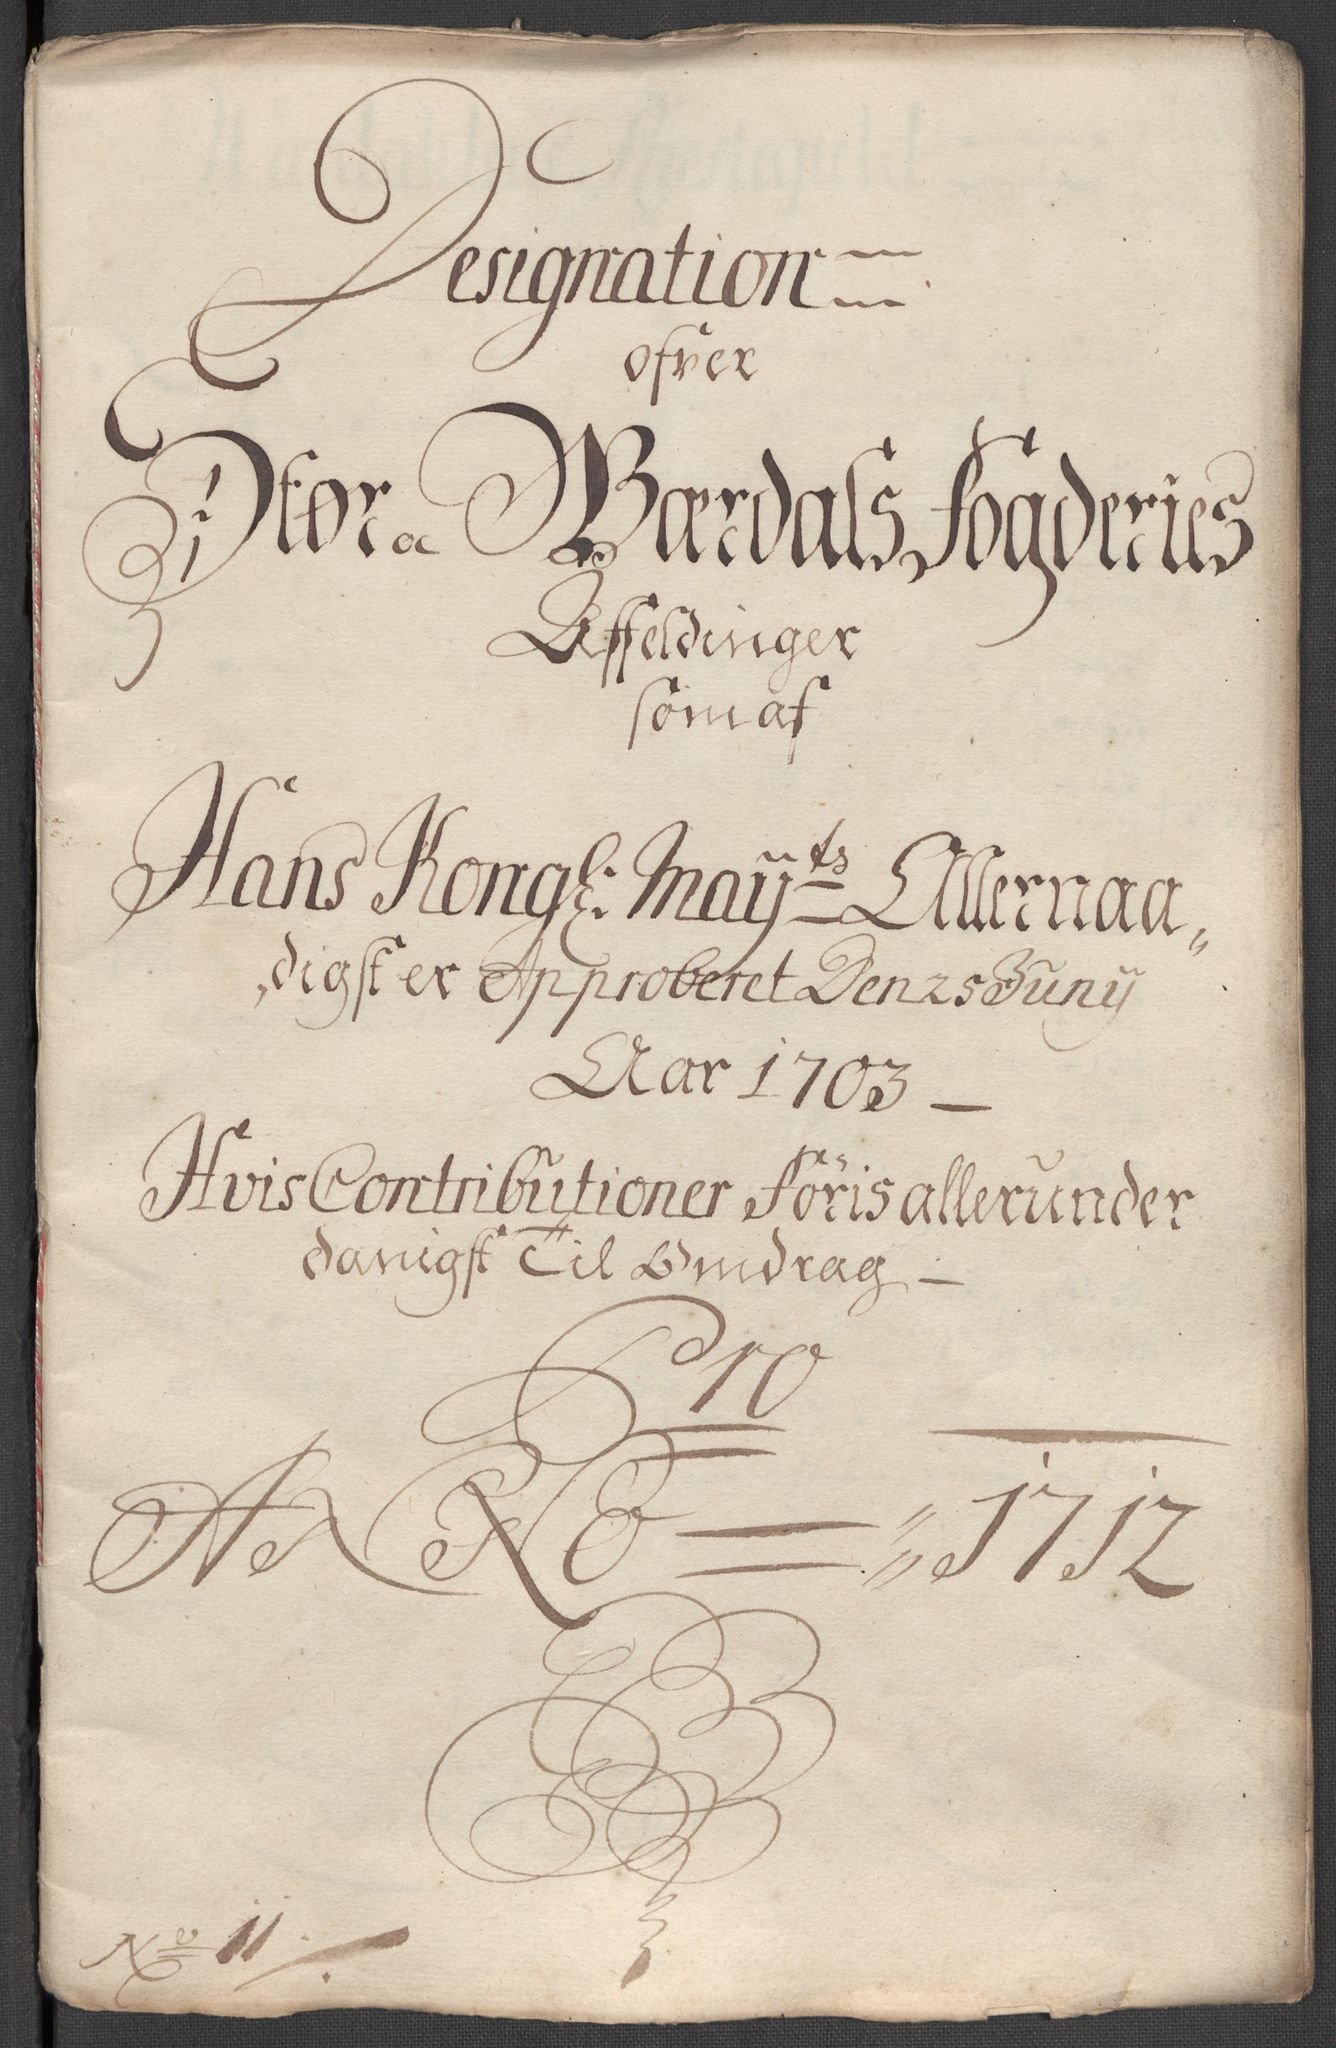 Designation
ofver
Stør. œ Værdals fogderies
Affeldinger
som af
Hans Kongl: Maÿts Allernaa„
„digst er Approberet Den 25 Junÿ
Aar 1703 –
Hvis Contributioner føris allerunder
danigst Til Omdrag –
Pro
ANNO = „ 1712
No 11.